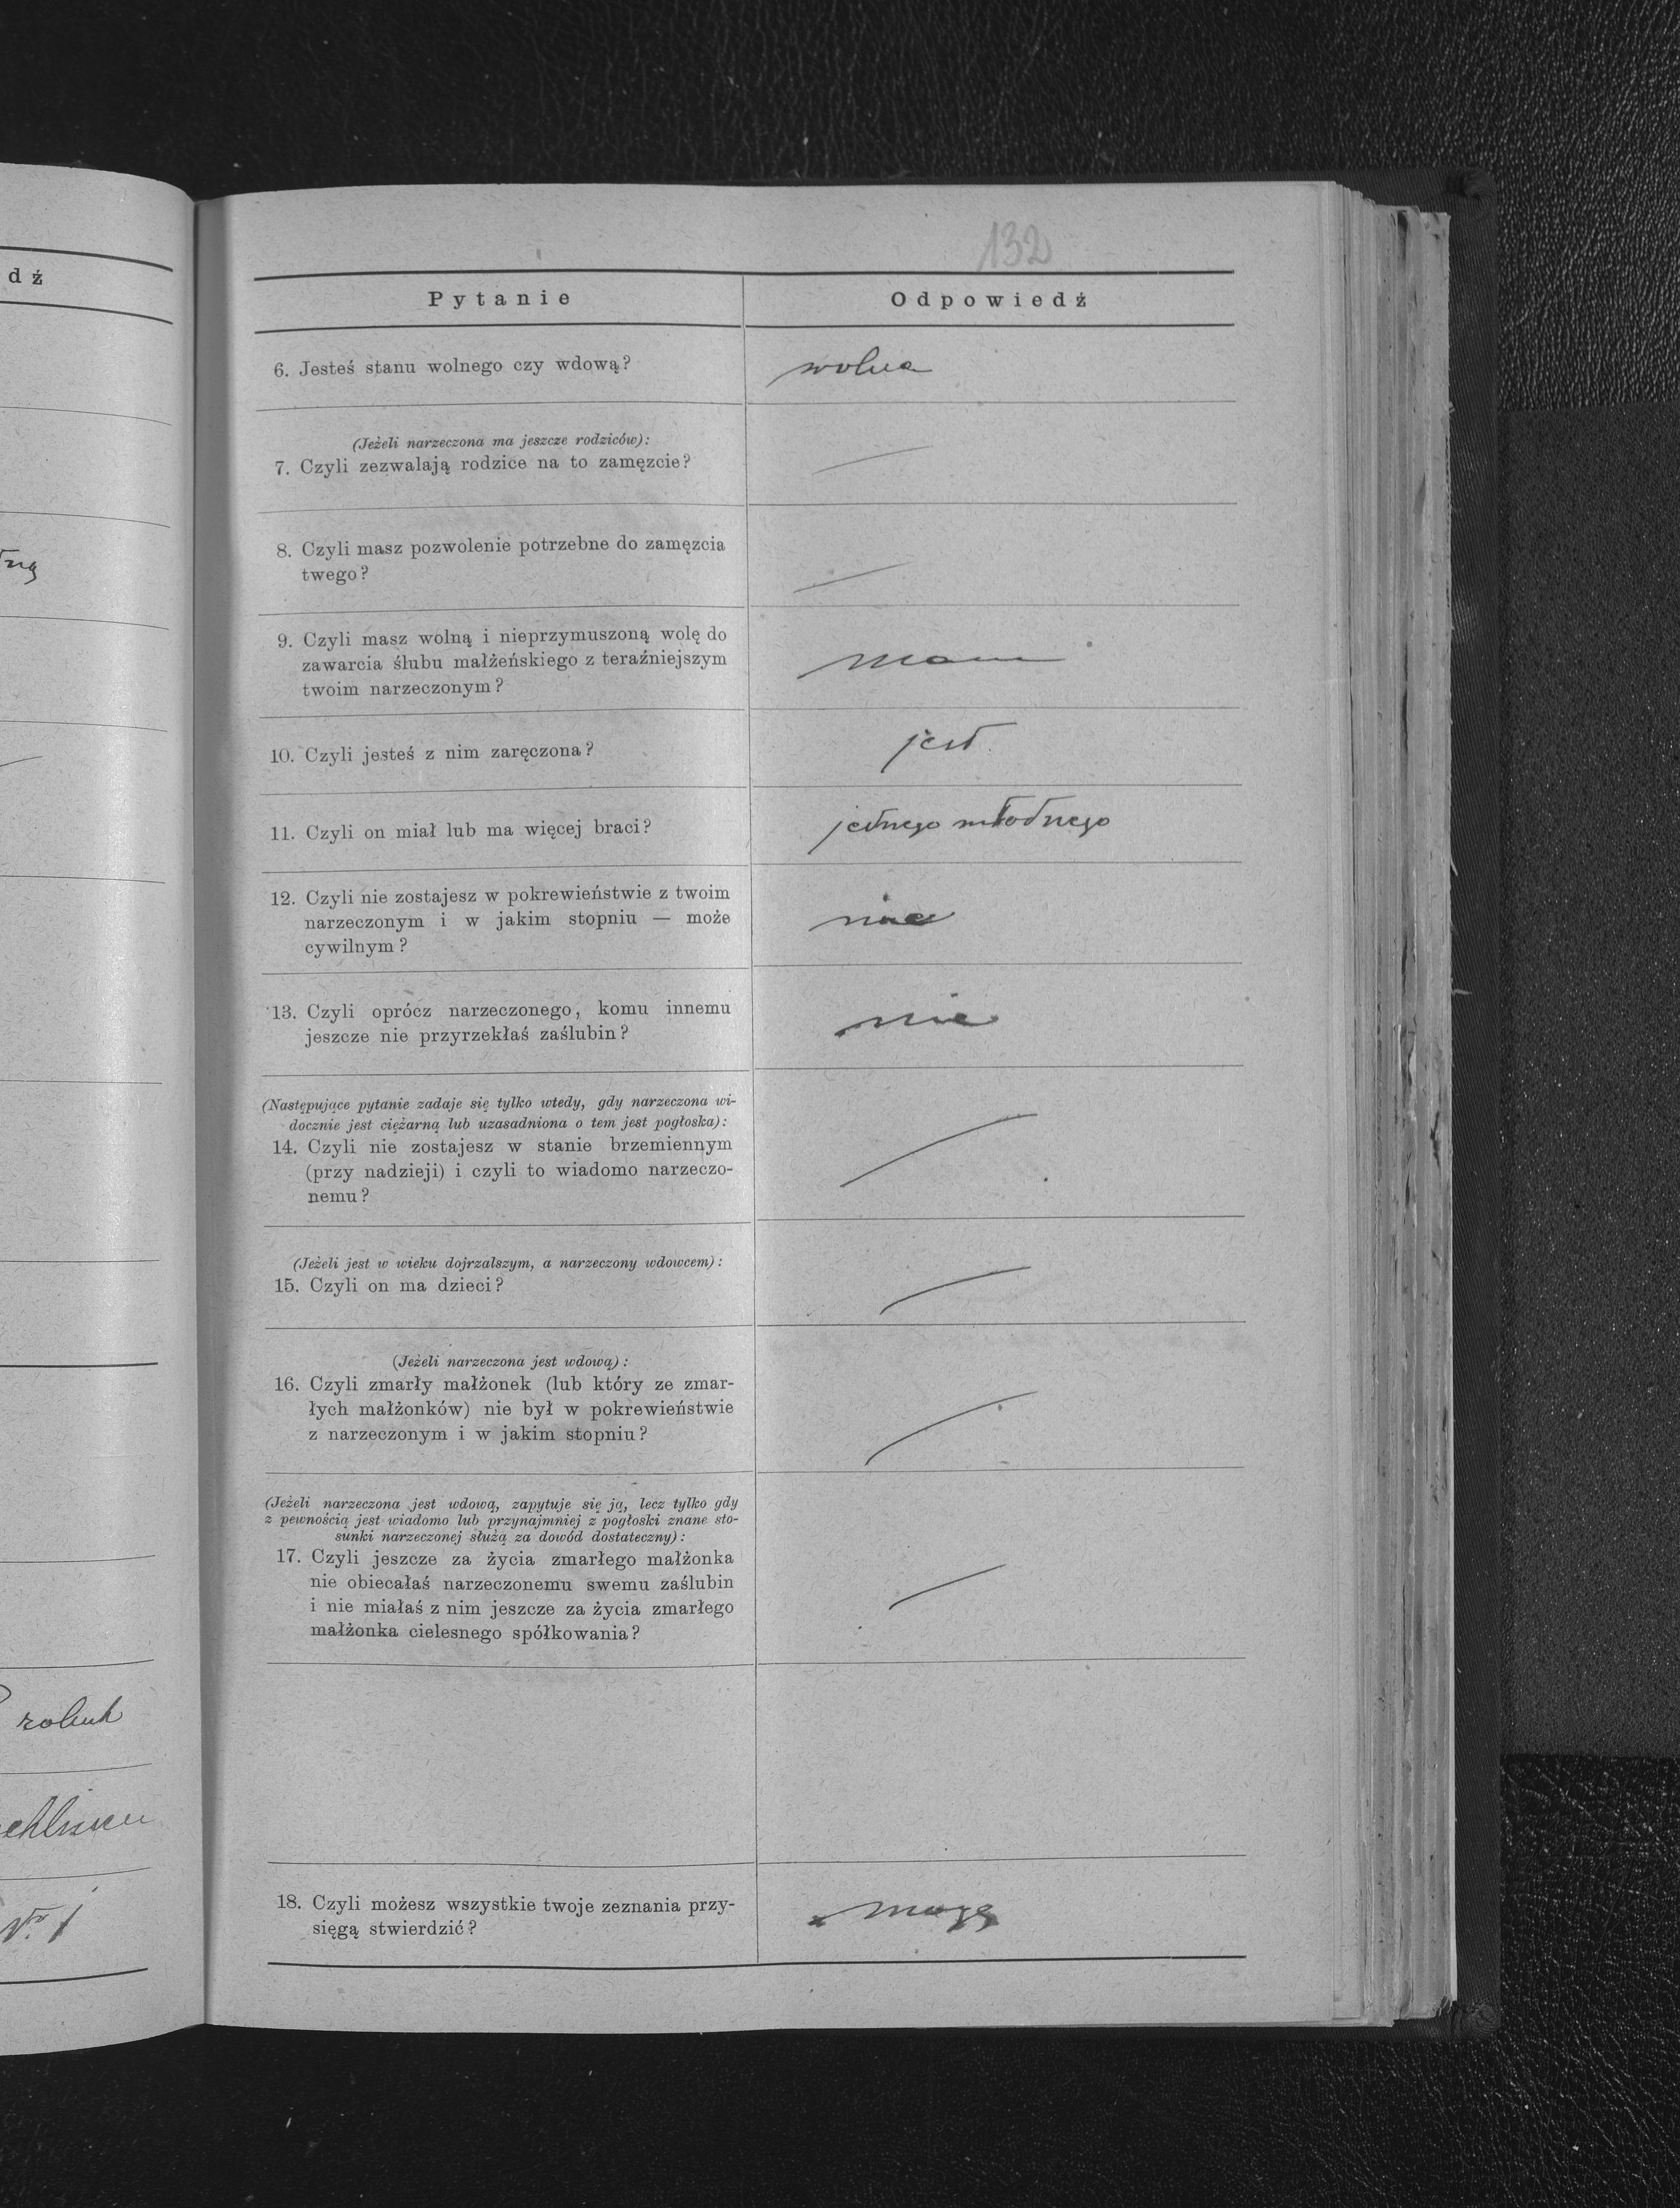 dź
ną
robuk
Nr. 1
132
Pytanie
Odpowiedź
6. Jesteś stanu wolnego czy wdową?
wolna
(Jeżeli narzeczona ma jeszcze rodziców):
7. Czyli zezwalają rodzice na to zamęzcie?
8. Czyli masz pozwolenie potrzebne do zamęzcia
twego?
9. Czyli masz wolną i nieprzymuszoną wolę do
zawarcia ślubu małżeńskiego z teraźniejszym
twoim narzeczonym?
mam
10. Czyli jesteś z nim zaręczona?
jest
11. Czyli on miał lub ma więcej braci?
jednego młodnego
12. Czyli nie zostajesz w pokrewieństwie z twoim
narzeczonym i w jakim stopniu — może
cywilnym?
nie
13. Czyli oprócz narzeczonego, komu innemu
jeszcze nie przyrzekłaś zaślubin?
nie
(Następujące pytanie zadaje się tylko wtedy, gdy narzeczona wi-
docznie jest ciężarną lub uzasadniona o tem jest pogłoska):
14. Czyli nie zostajesz w stanie brzemiennym
(przy nadzieji) i czyli to wiadomo narzeczo-
nemu?
(Jeżeli jest w wieku dojrzalszym, a narzeczony wdowcem):
15. Czyli on ma dzieci?
(Jeżeli narzeczona jest wdową):
16. Czyli zmarły małżonek (lub który ze zmar-
łych małżonków) nie był w pokrewieństwie
z narzeczonym i w jakim stopniu?
(Jeżeli narzeczona jest wdową, zapytuje się ją, lecz tylko gdy
z pewnością jest wiadomo lub przynajmniej z pogłoski znane sto-
sunki narzeczonej służą za dowód dostateczny):
17. Czyli jeszcze za życia zmarłego małżonka
nie obiecałaś narzeczonemu swemu zaślubin
i nie miałaś z nim jeszcze za życia zmarłego
małżonka cielesnego spółkowania?
18. Czyli możesz wszystkie twoje zeznania przy-
sięgą stwierdzić?
mogę